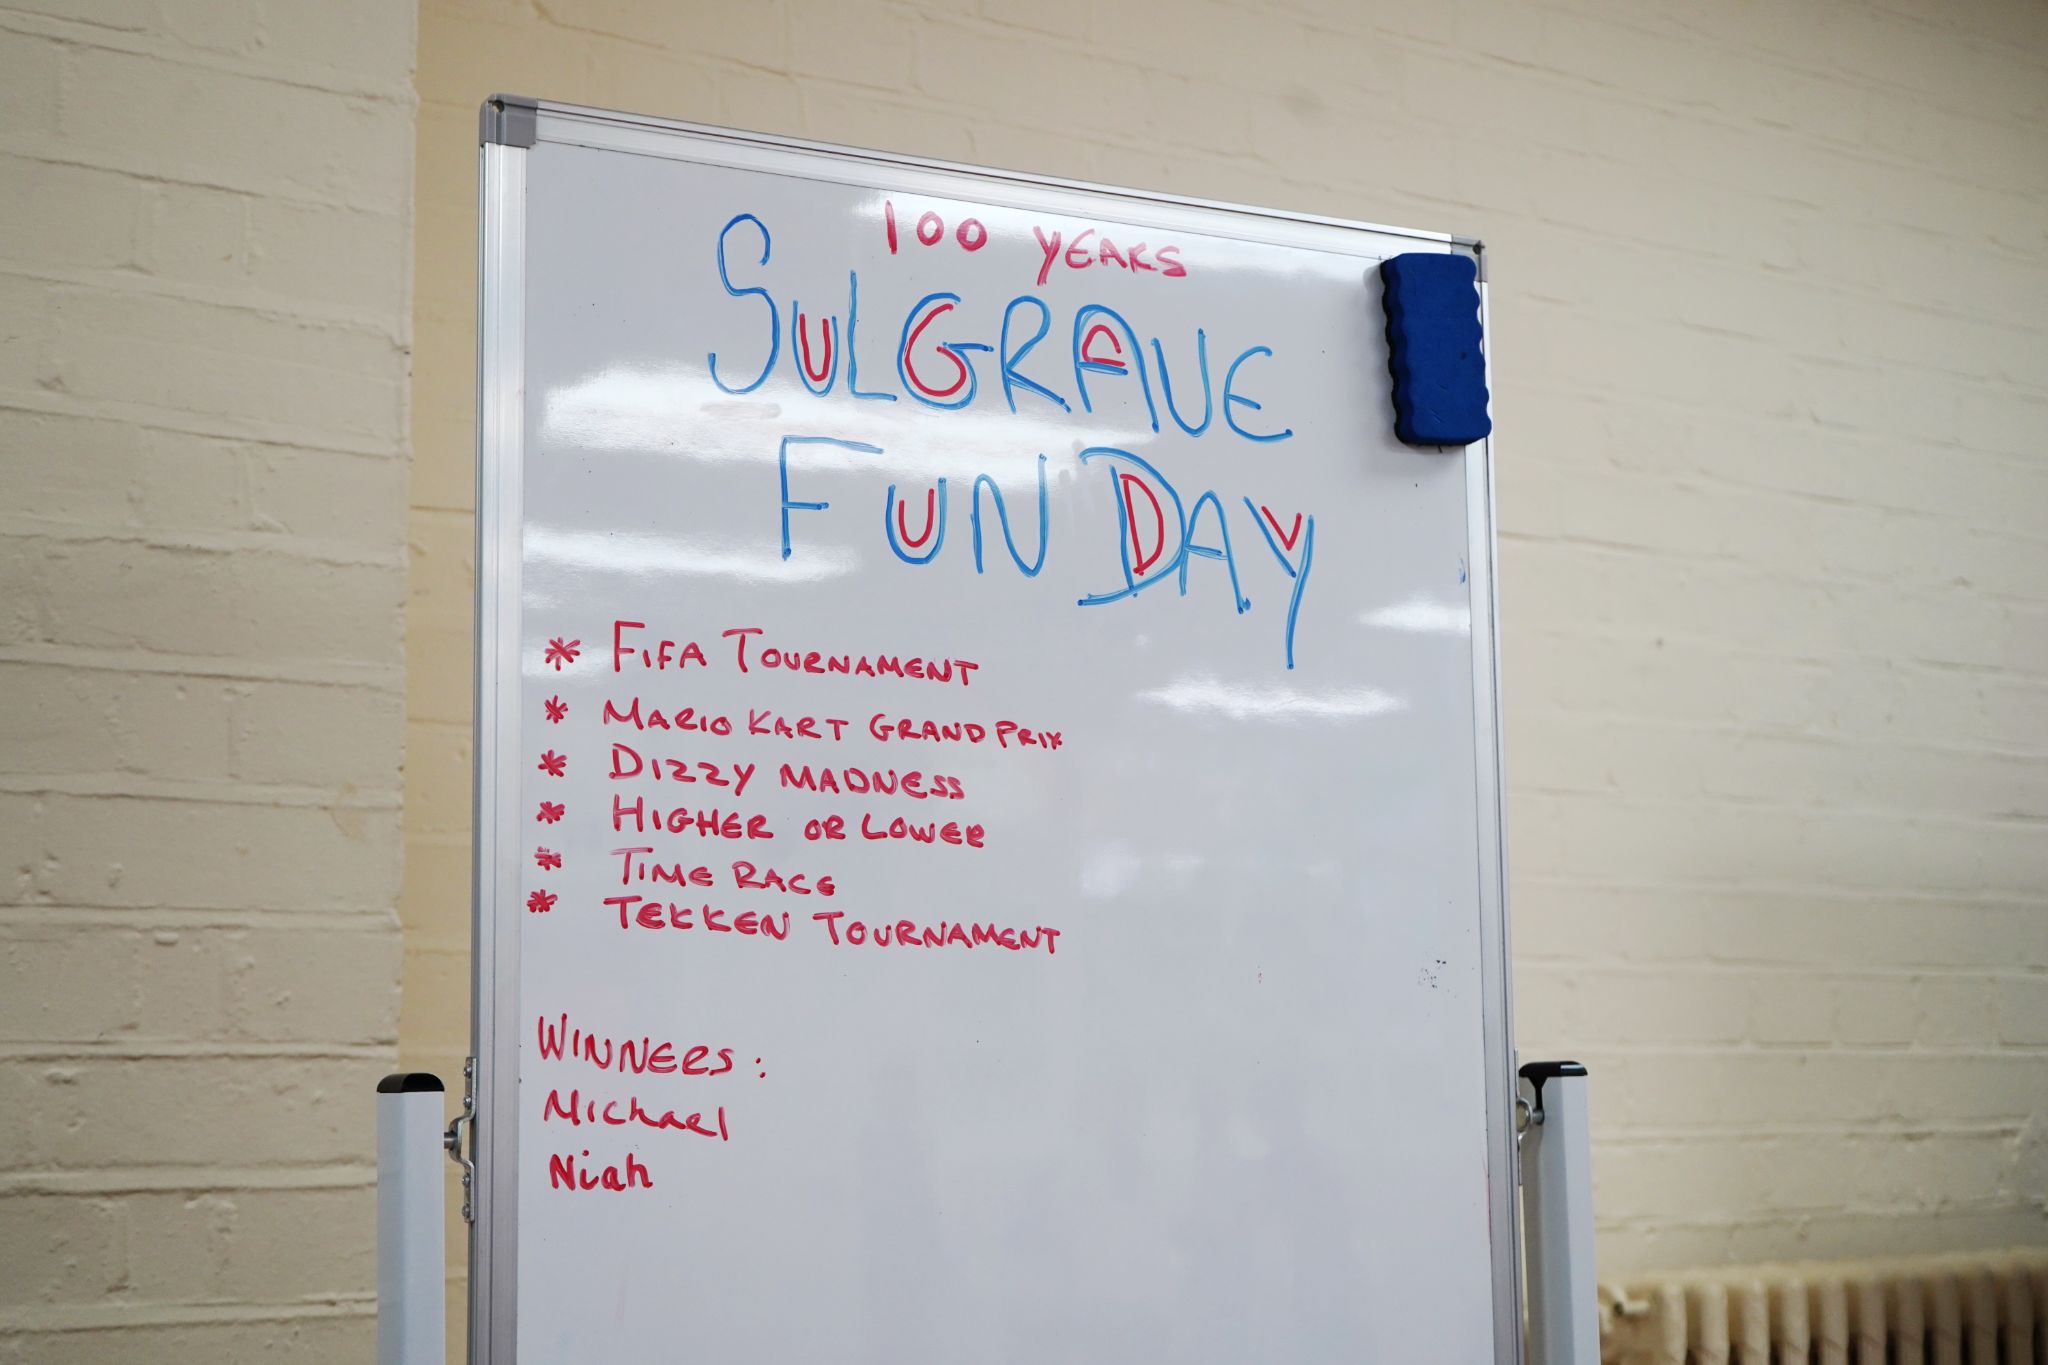 100 YEARS
SULGRAVE
FUN DAY
* FIFA TOURNAMENT
* MARIO KART GRAND PRIX
* DIZZY MADNESS
* HIGHER OR LOWER
* TIME RACE
* TEKKEN TOURNAMENT
WINNERS:
Michael
Niah